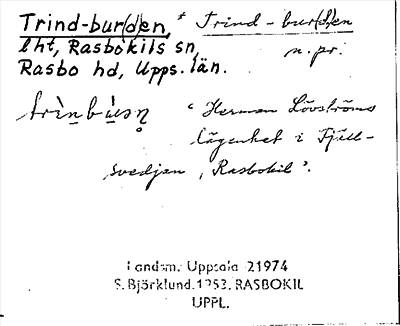 Trind-bur(d)en, * Trind-bur(d)en
lht, Rasbokils sn, n.pr.
Rasbo hd, Upps. län.
"Herman Lövströms
lägenhet i Fjäll-
svedjan, Rasbokil".
Landsm. Uppsala 21974
S. Björklund. 1953. RASBOKIL
UPPL.